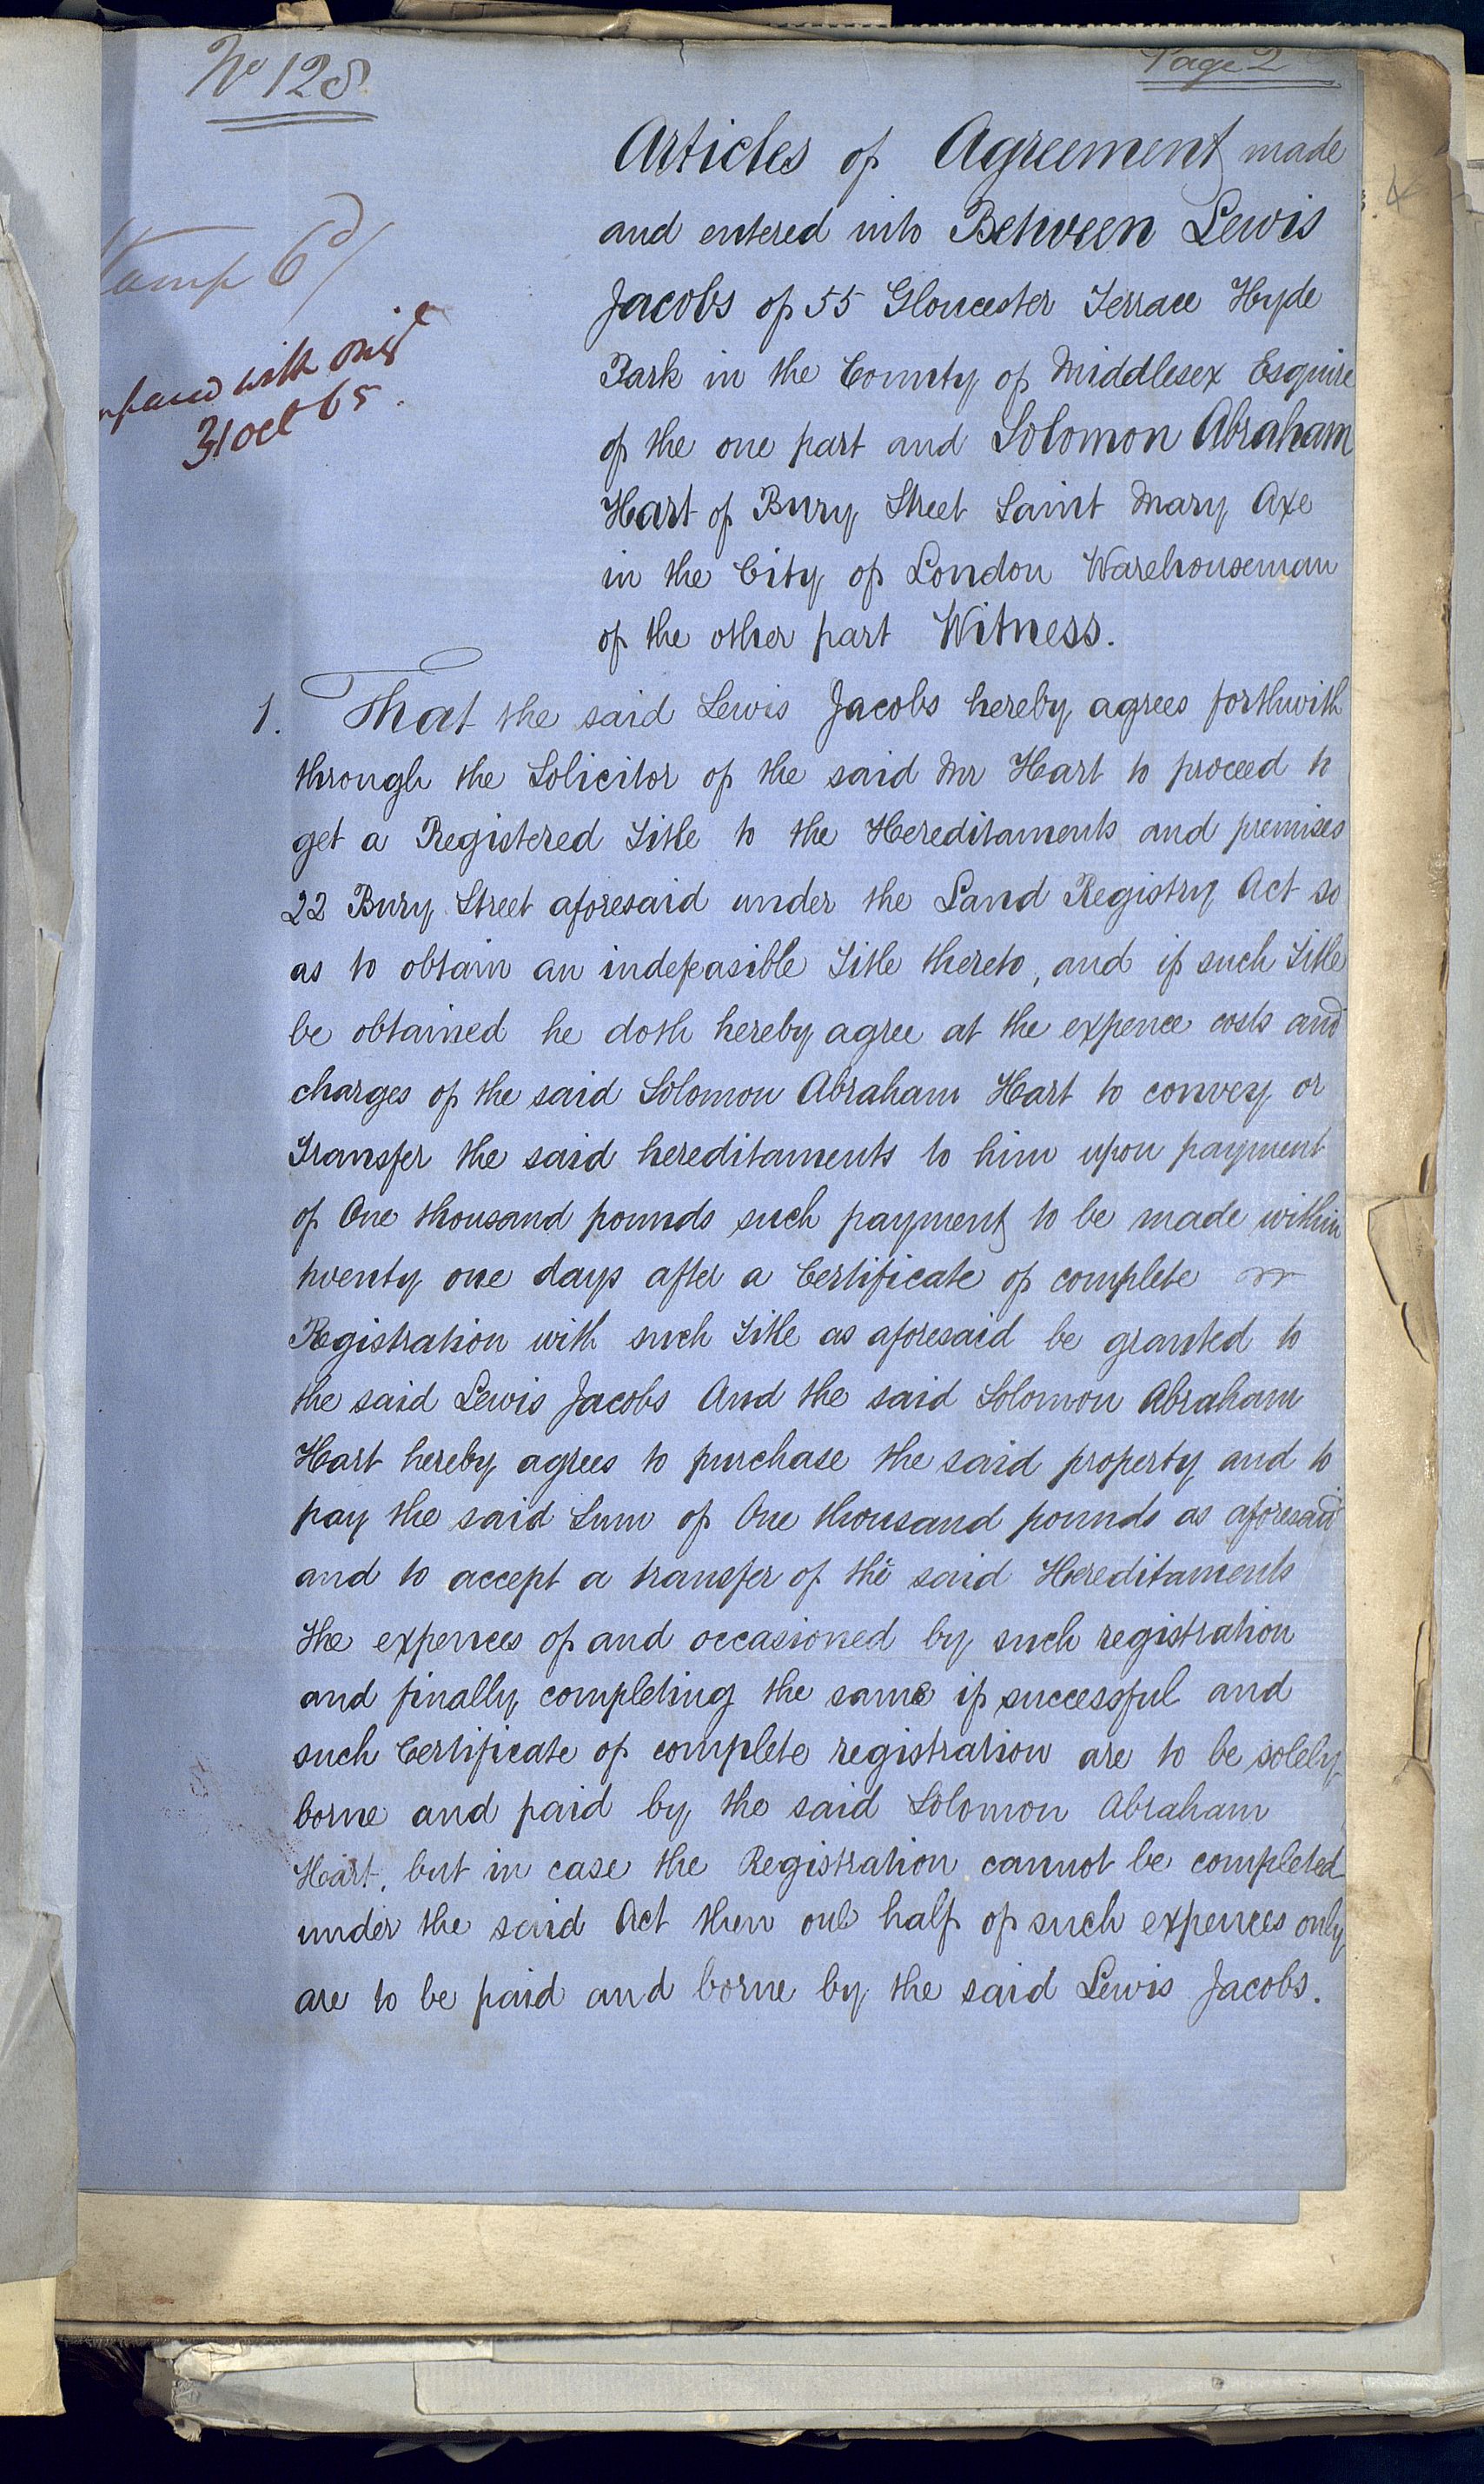 No 128
Page 2
Stamp 6d/
with orig.l
31 Oct 65.
Articles of Agreement made
and entered into Between Lewis
Jacobs of 55 Gloucester Terrace Hyde
Park in the County of Middlesex Esquire
of the one part and Solomon Abraham
Hart of Bury Street Saint Mary Axe
in the City of London Warehouseman
of the other part Witness.
1. That the said Lewis Jacobs hereby agrees forthwith
through the Solicitor of the said Mr Hart to proceed to
get a Registered Title to the Hereditaments and premises
22 Bury Street aforesaid under the Land Registry Act so
as to obtain an indefeasible Title thereto, and if such Title
be obtained he doth hereby agree at the expence costs and
charges of the said Solomon Abraham Hart to convey or
Transfer the said hereditaments to him upon payment
of One thousand pounds such payment to be made within
twenty one days after a Certificate of complete
Registration with such Title as aforesaid be granted to
the said Lewis Jacobs And the said Solomon Abraham
Hart hereby agrees to purchase the said property and to
pay the said Sum of One thousand pounds as aforesaid
and to accept a transfer of the said Hereditaments
the expences of and occasioned by such registration
and finally completing the same if successful and
such Certificate of complete registration are to be solely
borne and paid by the said Solomon Abraham
Hart, but in case the Registration cannot be completed
under the said Act then one half of such expences only
are to be paid and borne by the said Lewis Jacobs.